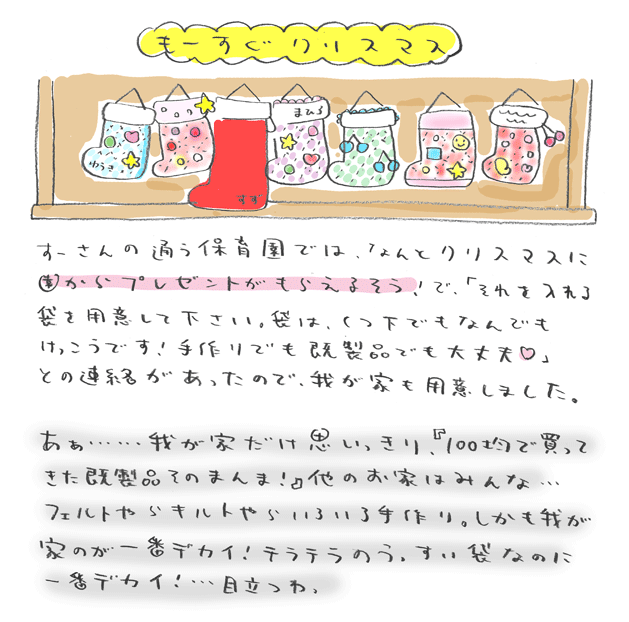 もーすぐクリスマス
ゆうき
まひろ
すす
すーさんの通う保育園では、なんとクリスマスに
園からプレゼントがもらえるそう!で、「それを入れる
袋を用意して下さい。袋は、くつ下でもなんでも
けっこうです!手作りでも既製品でも大丈夫♡」
との連絡があったので、我が家も用意しました。
あぁ……我が家だけ思いっきり、『100均で買って
きた既製品そのまんま!』他のお家はみんな…
フェルトやらキルトやらいろいろ手作り。しかも我が
家のが一番デカイ!テラテラのう。すい袋なのに
一番デカイ!…目立つわ。